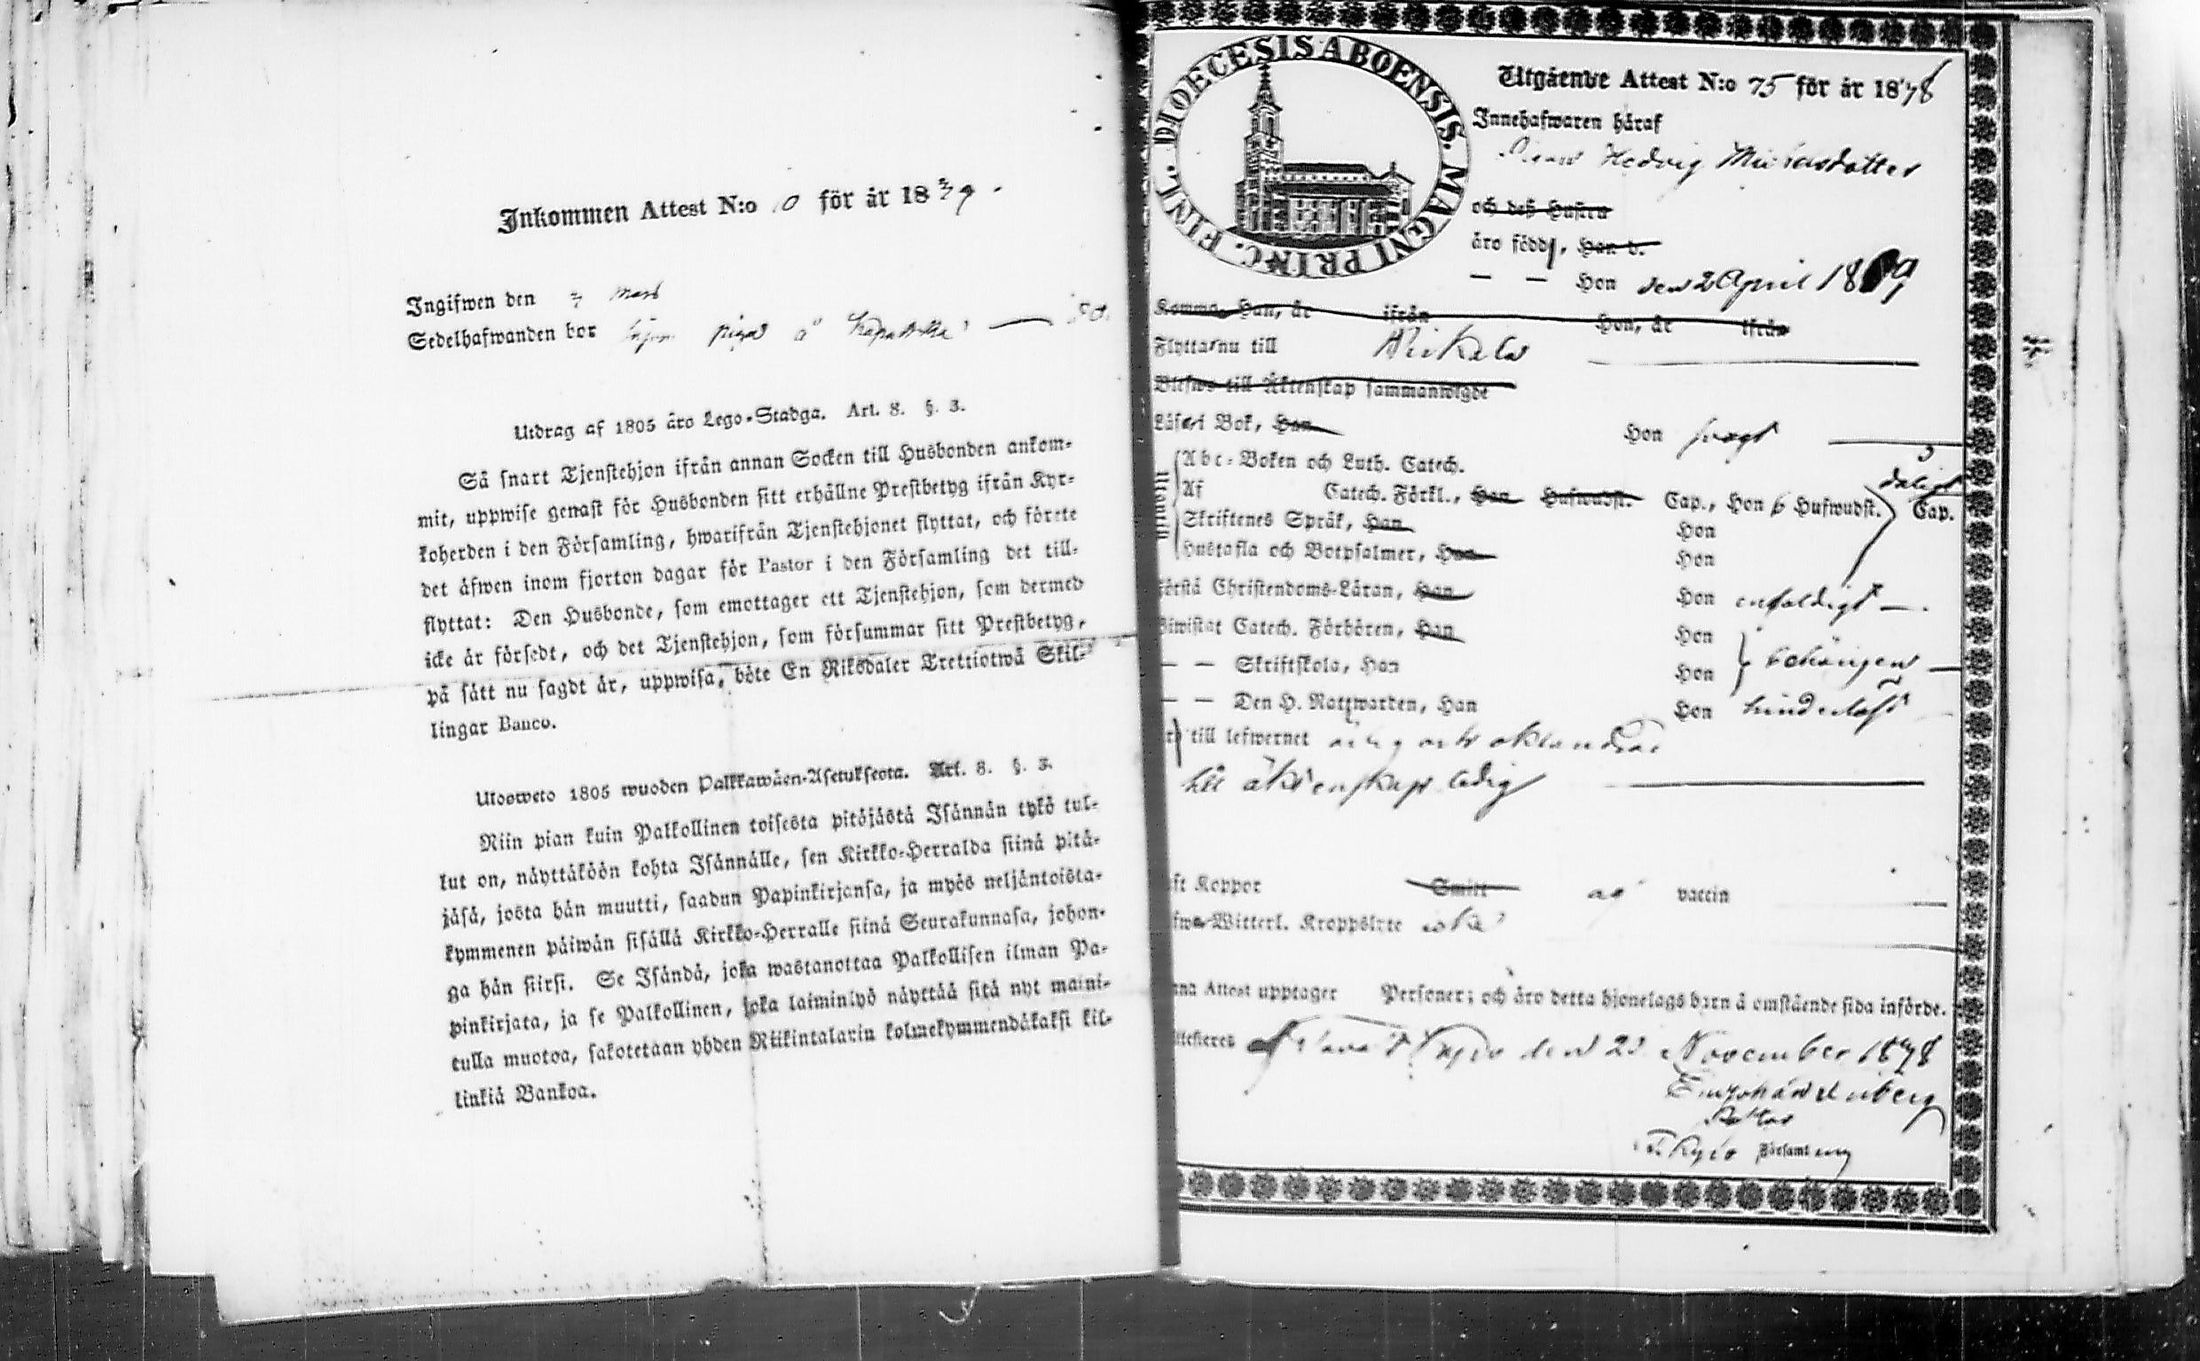 Inkommen Attest N:o 10 för år 1879.
Ingifwen den Mars
Sedelhafwanden bor såsom piga å
Utdrag af 1805 års Lego-Stadga. Art. 8. §. 3.
Så snart Tjenstehjon ifrån annan Socken till Husbonden ankom-
mit, uppwise genast för Husbonden sitt erhållne Prestbetyg ifrån Kyr-
koherden i den Församling, hwarifrån Tjenstehjonet flyttat, och förete
det äfwen inom fjorton dagar för Pastor i den Församling det till-
flyttat: Den Husbonde, som emottager ett Tjenstehjon, som dermed
icke är försedt, och det Tjenstehjon, som försummar sitt Prestbetyg,
på sätt nu sagdt är, uppwisa, böte En Riksdaler Trettiotwå Skil-
lingar Banco.
Ulosweto 1805 wuoden Palkkawäen-Asetuksesta. Art. 8. §. 3.
Niin pian kuin Palkollinen toisesta pitäjästä Isännän tykö tul-
lut on, näyttäköön kohta Isännälle, sen Kirkko-Herralda siinä pitä-
jäsä, josta hän muutti, saadun Papinkirjansa, ja myös neljäntoista-
kymmenen päiwän sisällä Kirkko-Herralle siinä Seurakunnasa, johon-
ga hän siirsi. Se Isändä, joka wastanottaa Palkollisen ilman Pa-
pinkirjata, ja se Palkollinen, joka laiminlyö näyttää sitä nyt maini-
tulla muotoa, sakotetaan yhden Riikintalarin kolmekymmendäkaksi kil-
linkiä Bankoa.
FINL. DIOECESIS ABOENSIS. MAGNI PRINC.
Utgående Attest N:o 75 för år 1878
Innehafwaren häraf
Pigan Hedvig Michelsdotter
och deß Hustru
äro född, Han d.
— — Hon den 2 April 1819
Komma, Han, år ifrån Hon, år ifrån
Flyttar nu till Nickeln
Blefwo till Äktenskap sammanwigde
Läser i Bok, Han Hon svagt
Utantill
Abc-Boken och Luth. Catech.
Af Catech. Förkl., Han Hufwudst. Cap., Hon 6 Hufwudst. Cap.
dåligt
Skriftenes Språk, Han Hon
Hustafla och Botpsalmer, Han Hon
förstå Christendoms-Läran, Han Hon enfaldigt —.
Biwistat Catech. Förhören, Han Hon
— — Skriftskola, Han Hon behörigen —
— — Den H. Nattwarden, Han Hon hinderlöst
till lefwernet ärlig och oklandrad
till äktenskap ledig
haft Koppor Smitt af vaccin
Witterl. Kroppslyte icke
Attest upptager Personer; och äro detta hjonelags barn å omstående sida införde.
Attesteras den 23 November 1878
Pastor
Församling